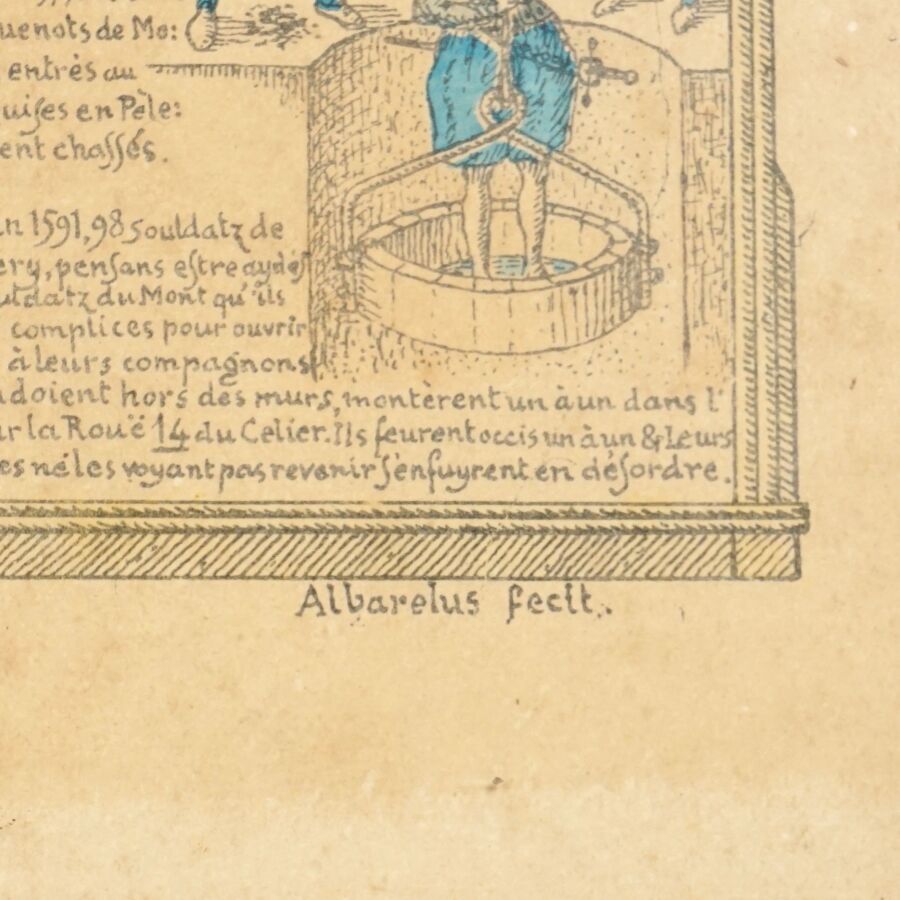 uenots de Mo:
entrès au
uises en Pèle:
ent chassés.
n 1591, 98 souldatz de
ery, pensans estre aydés
uldatz du Mont qu'ils
complices pour ouvrir
à leurs compagnons
doient hors des murs, montèrent un à un dans l'
ur la Rouë 14 du Celier. Ils feurent occis un à un & Leurs
es né les voyant pas revenir s'enfuyrent en désordre.
Albarelus fecit.